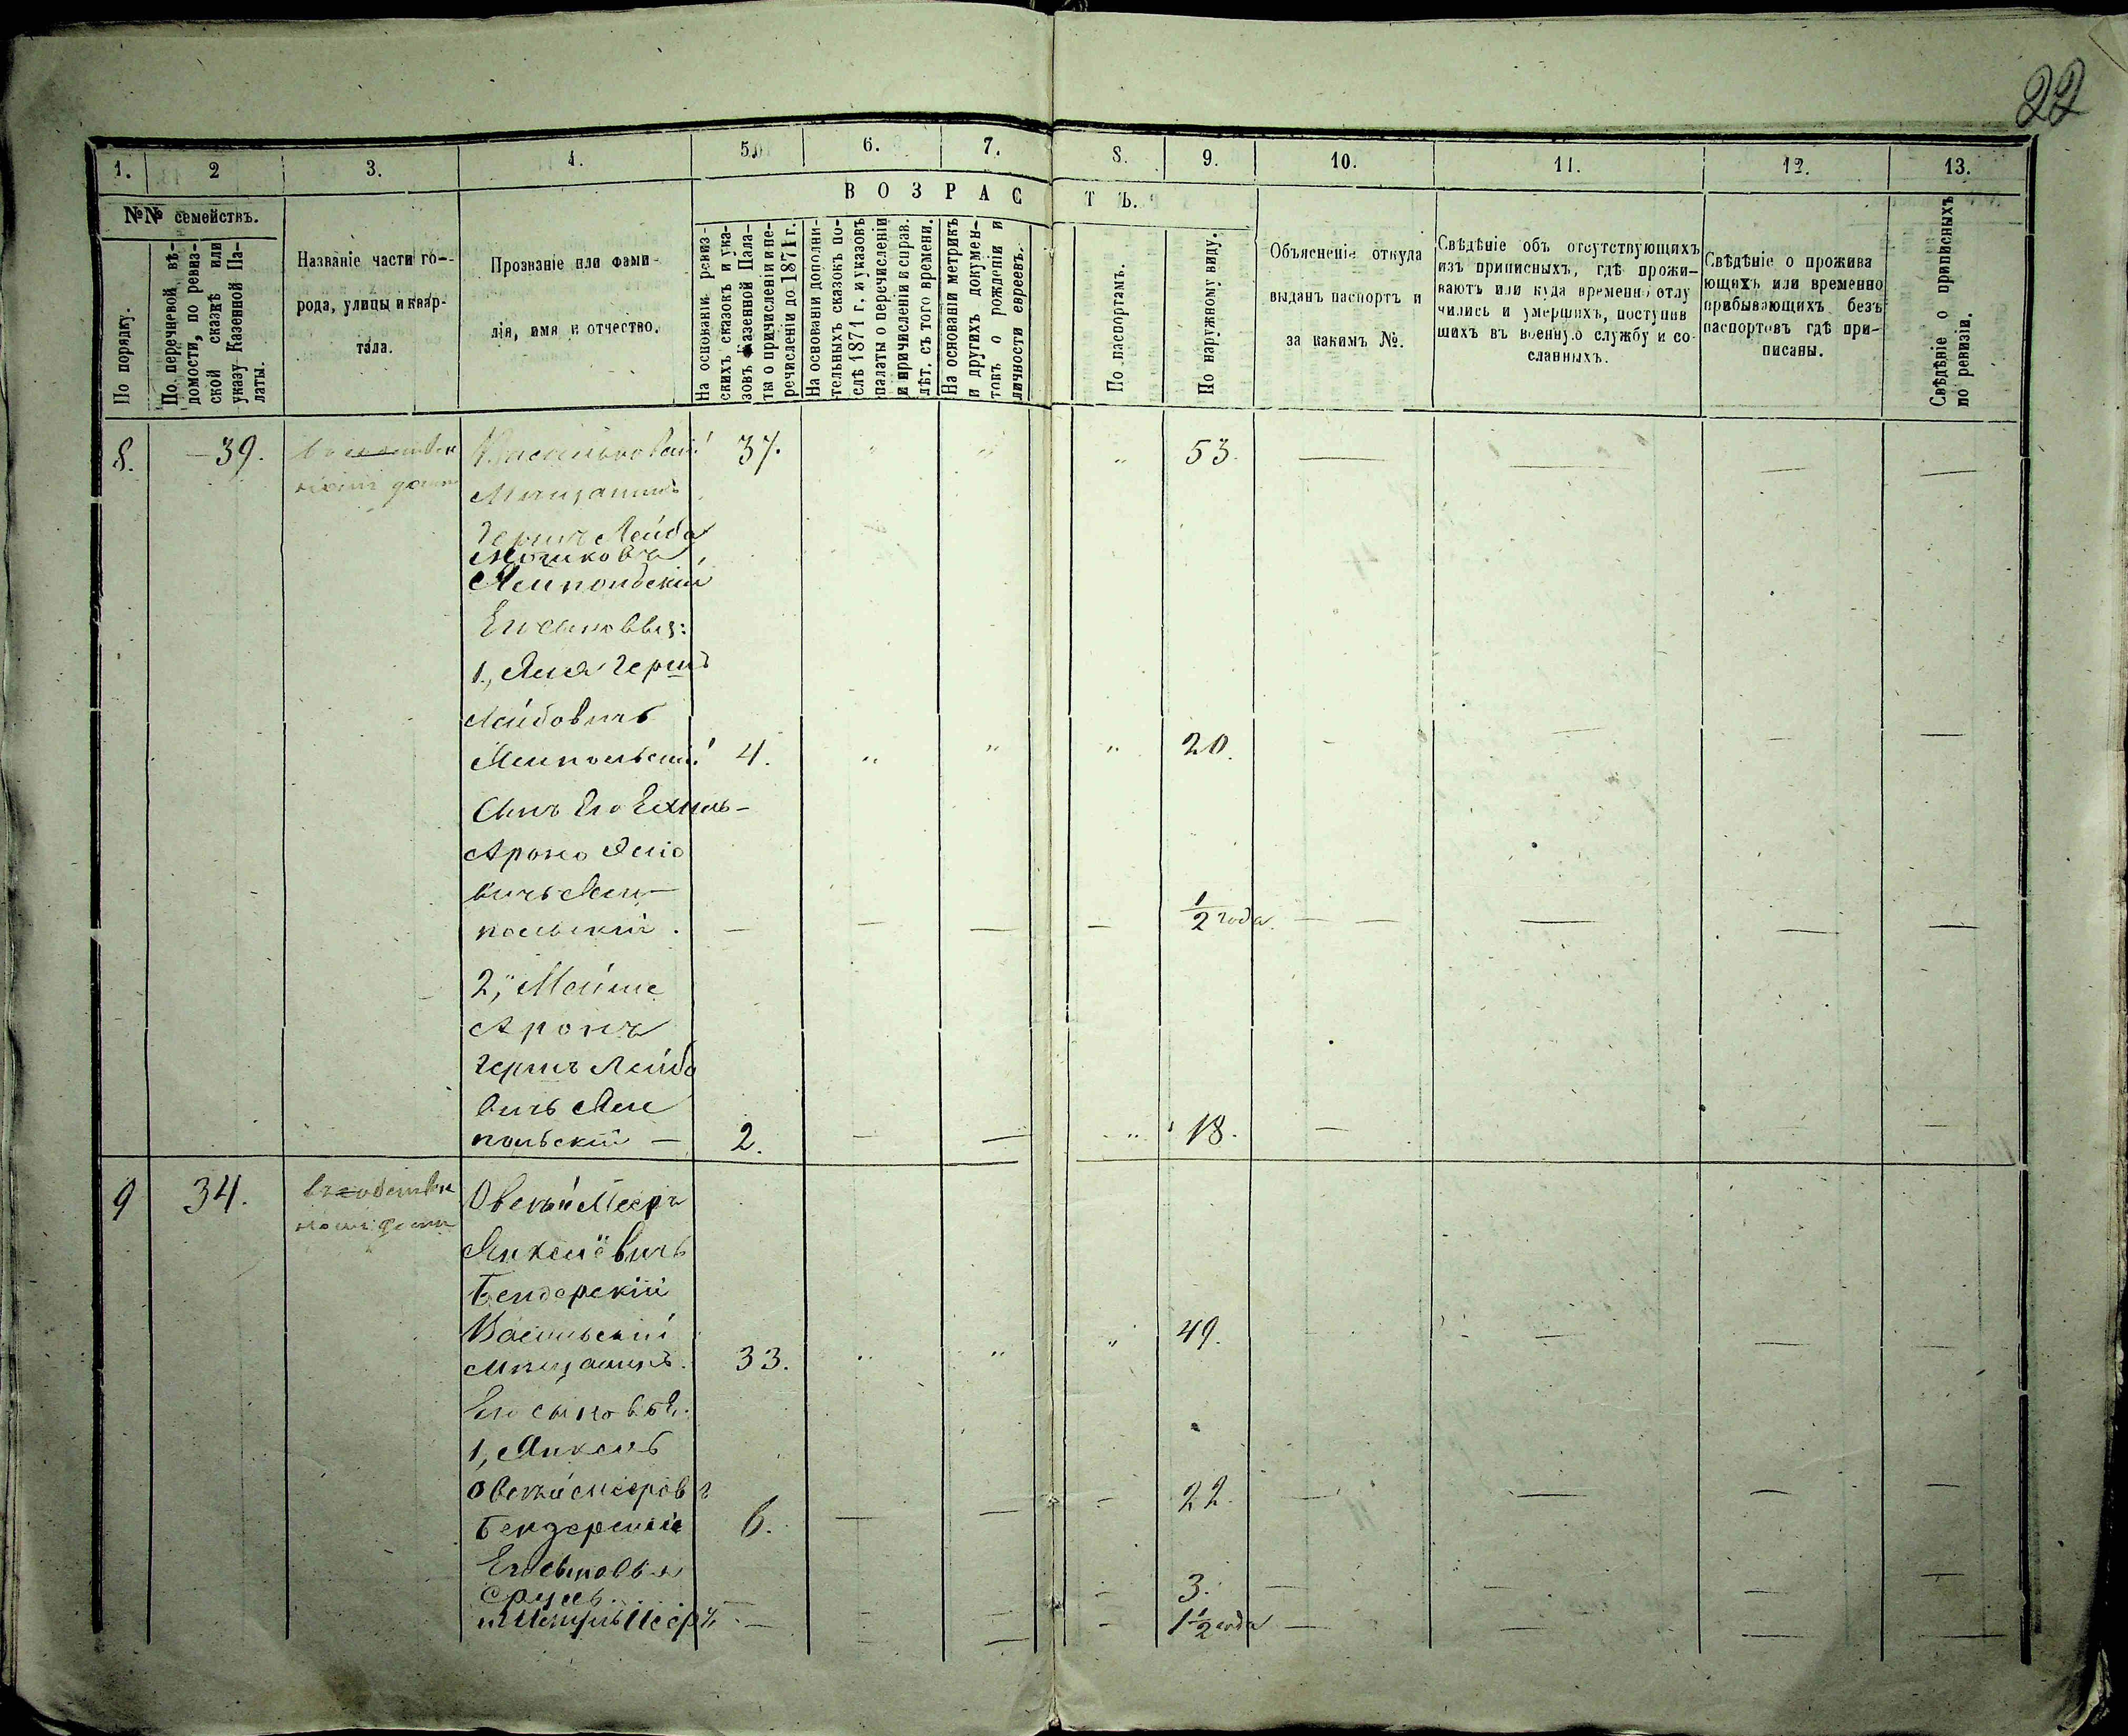 22
1. 2 3. 4. 5. 6. 7. 8. 9. 10. 11. 12. 13.
№№ семействъ.
По порядку.
По перечневой вѣ-
домости, по ревиз-
ской сказкѣ или
указу Казенной Па-
латы.
Названіе части го-
рода, улицы и квар-
тала.
Прозваніе или фами-
лія, имя и отчество.
ВОЗРАСТЪ.
На основаніи ревиз-
скихъ сказокъ и ука-
зовъ Казенной Пала-
ты о причисленіи и пе-
речисленіи до 1871 г.
На основаніи дополни-
тельныхъ сказокъ по-
слѣ 1871 г. и указовъ
палаты о перечисленіи
и причисленіи и справ.
лѣт. съ того времени.
На основаніи метрикъ
и другихъ докумен-
товъ о рожденіи и
личности евреевъ.
По паспортамъ.
По наружному виду.
Объясненіе откуда
выданъ паспортъ и
за какимъ №.
Свѣдѣніе объ отсутствующихъ
изъ приписныхъ, гдѣ прожи-
ваютъ или куда временно отлу
чились и умершихъ, поступив
шихъ въ военную службу и со
сланныхъ.
Свѣдѣніе о прожива
ющихъ или временно
прибывающихъ безъ
паспортовъ гдѣ при-
писаны.
Свѣдѣніе о приписныхъ
по ревизіи.
8. 39. 37. 53.
Мѣщанинъ
Гершъ Лейба
Мошковъ
Его сыновья:
1, Гершъ
Лейбовичъ
Ямпольскій 4. 20.
Сынъ Его
Ароно
вичъ Ям
польскій. 1/2 года
2, Мейше
Аронъ
Гершъ Лейбо
вичъ Ям
польскій 2. 18.
9 34. Овсѣй Мееръ
Янкелевичъ
Бендерскій
49.
мѣщанинъ. 33.
Его сыновья.
1, Янкель
Овсѣй Мееров
Бендерскій 6. 22.
Его сыновья
Сруль 3.
1 1/2 года